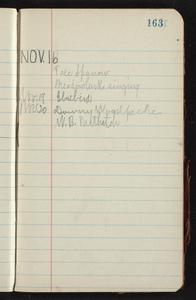 163
NOV. 16
Tree Sparrow
Meadowlark singing
Nov. 19 Bluebird
Nov. 20 Downy Woodpecker
W. B. Nuthatch